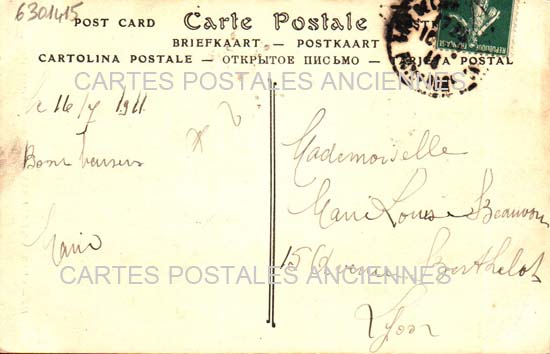 6301415
POST CARD Carte Postale
BRIEFKAART — POSTKAART
CARTOLINA POSTALE — ОТКРЫТОЕ ПИСЬМО — TARJETA POSTAL
CARTES POSTALES ANCIENNES
Le 16/7 1911
Bons baisers
Marie
Mademoiselle
Marie Louise Beauvoir
15 Avenue Berthelot
Lyon
CARTES POSTALES ANCIENNES